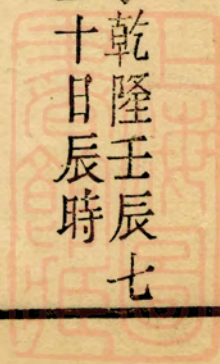 乾隆壬辰七
十日辰時